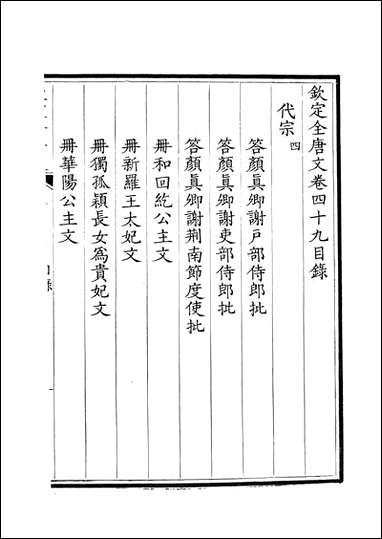 欽定全唐文卷四十九目錄
代宗四
答顏真卿謝戶部侍郎批
答顏真卿謝吏部侍郎批
答顏真卿謝荆南節度使批
冊和回紇公主文
冊新羅王太妃文
冊獨孤穎長女為貴妃文
冊華陽公主文